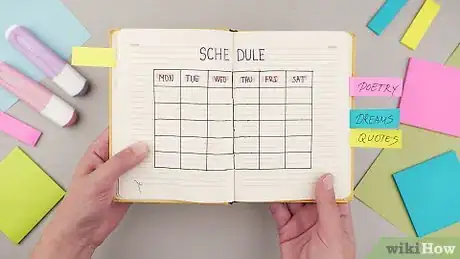 SCHEDULE
MON TUE WED THU FRS SAT
POETRY
DREAMS
QUOTES
wikiHow